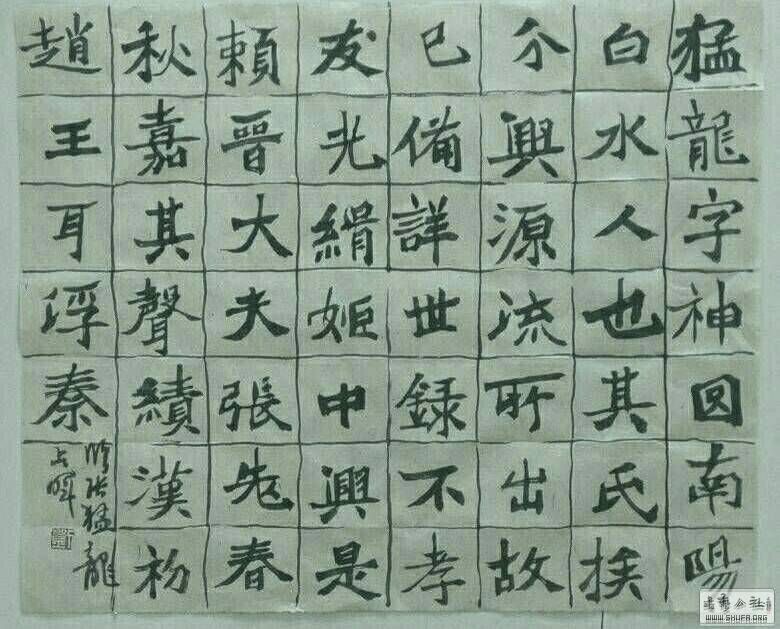 猛龍字神囧南陽
白水人也其氏族
分興源流所出故
已備詳世錄不孝
友光緝姬中興是
賴晉大夫張老春
秋嘉其聲績漢初
趙王耳浮秦
臨張猛龍
書藝公社
WWW.SHUFA.ORG